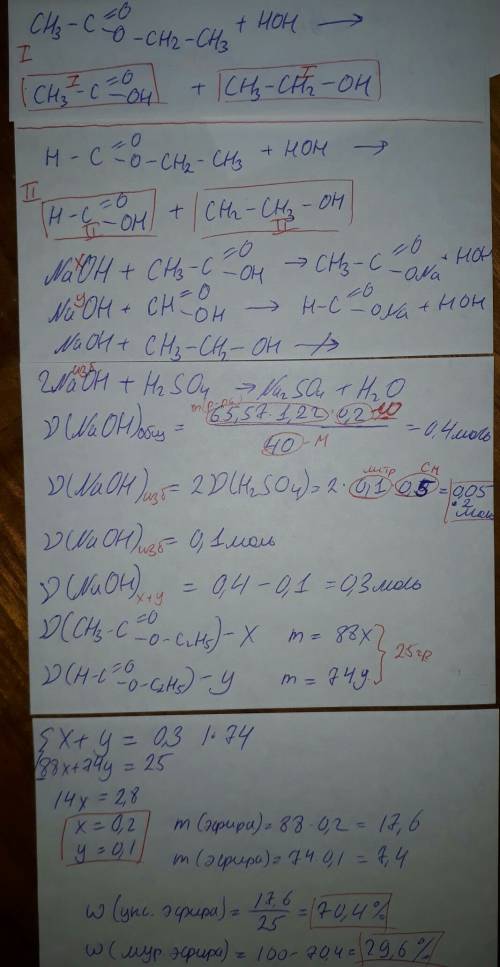 CH₃-C(=O)-O-CH₂-CH₃ + HOH →
I
CH₃-C(=O)-OH I + CH₃-CH₂-OH I
H-C(=O)-O-CH₂-CH₃ + HOH →
II
H-C(=O)-OH II + CH₂-CH₃-OH II
x
NaOH + CH₃-C(=O)-OH → CH₃-C(=O)-ONa + HOH
y
NaOH + CH(=O)-OH → H-C(=O)-ONa + HOH
NaOH + CH₃-CH₂-OH ↛
изб
2NaOH + H₂SO₄ → Na₂SO₄ + H₂O
m(р-ра)
ν(NaOH)общ = (65,57·1,22·0,2)/(40 - M) = 0,4моль
литр См
ν(NaOH)изб = 2ν(H₂SO₄) = 2·0,1·0,5 = 0,05·2 моль
ν(NaOH)изб = 0,1моль
ν(NaOH)x+y = 0,4-0,1 = 0,3моль
ν(CH₃-C(=O)-O-C₂H₅) - x m = 88x
25гр
ν(H-C(=O)-O-C₂H₅) - y m = 74y
{x+y = 0,3 |·74
88x+74y = 25
14x = 2,8
x = 0,2 m(эфира) = 88·0,2 = 17,6
y = 0,1 m(эфира) = 74·0,1 = 7,4
w(укс. эфира) = 17,6/25 = 70,4%
w(мур. эфира) = 100-70,4 = 29,6%